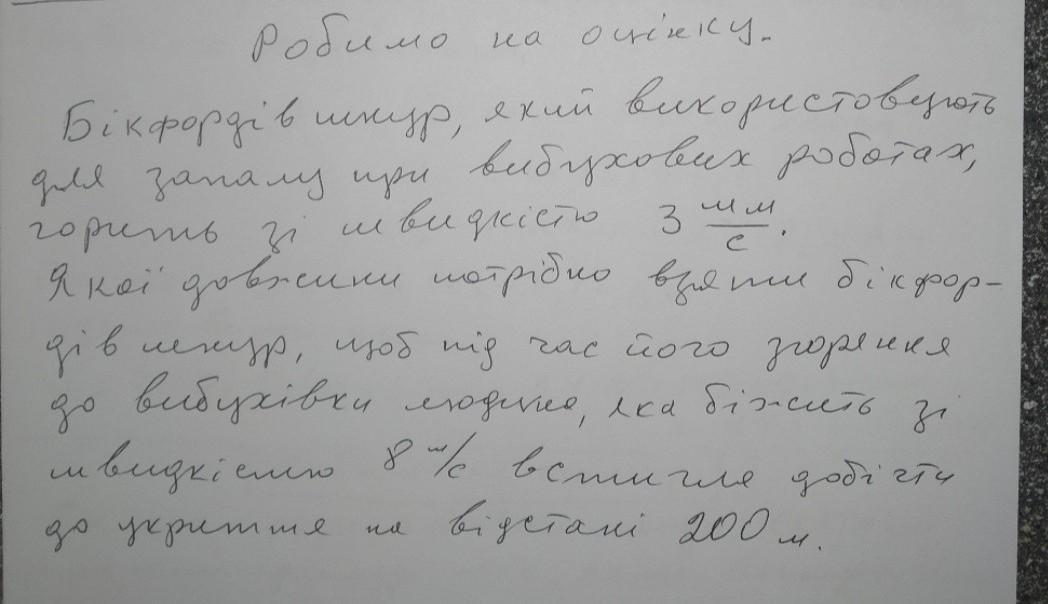 Робимо на оцінку.
Бікфордів шнур, який використовують
для запалу при вибухових роботах,
горить зі швидкістю 3 мм/с.
Якої довжини потрібно взяти бікфор-
дів шнур, щоб під час його згоряння
до вибухівки людина, яка біжить зі
швидкістю 8 м/с встигла добігти
до укриття на відстані 200 м.